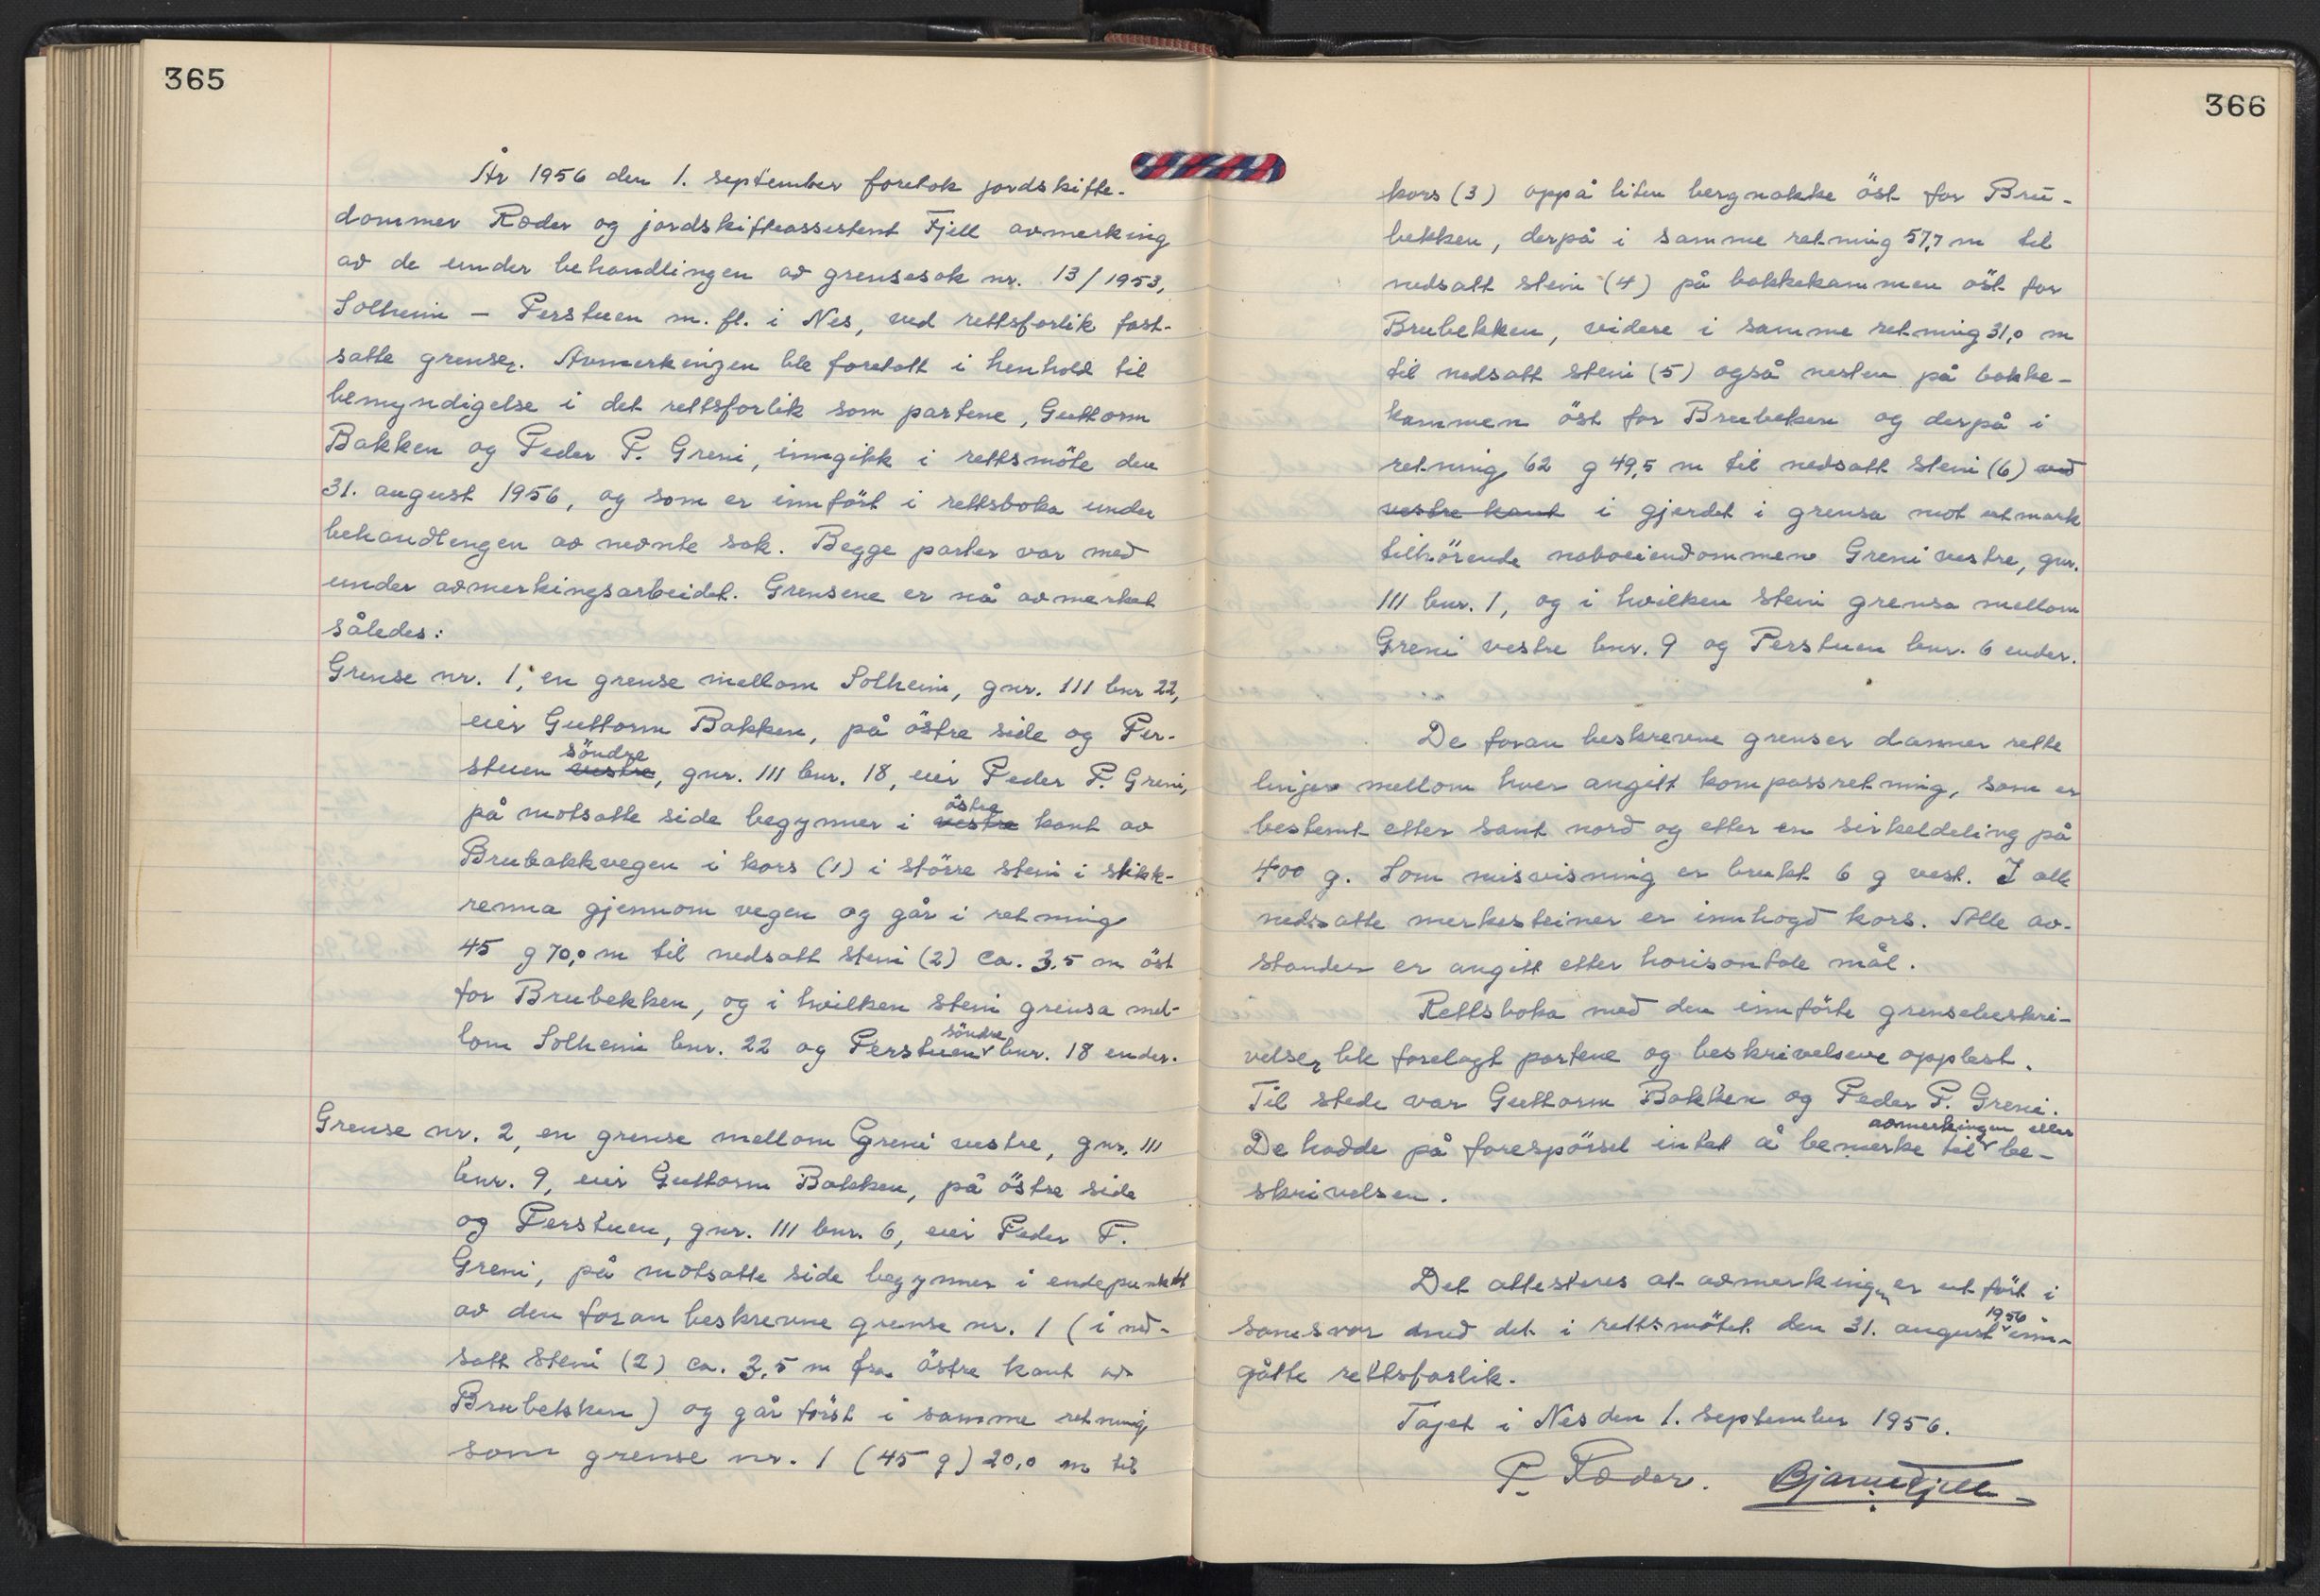 365
År 1956 den 1. september foretok jordskifte-
dommer Ræder og jordskifteassistent Fjell avmerking
av de under behandlingen av grensesak nr. 13/1953,
Solheim – Perstuen m. fl. i Nes, ved rettsforlik fast-
satte grenser. Avmerkingen ble foretatt i henhold til
bemyndigelse i det rettsforlik som partene, Guttorm
Bakken og Peder P. Greni, inngikk i rettsmöte den
31. august 1956, og som er innfört i rettsboka under
behandlingen av nevnte sak. Begge parter var med
under avmerkingsarbeidet. Grensene er nå avmerket
således:
Grense nr. 1, en grense mellom Solheim, gnr. 111 bnr 22,
eier Guttorm Bakken, på östre side og Per-
söndre
stuen vestre, gnr. 111 bnr. 18, eier Peder P. Greni,
östre
på motsatte side begynner i vestre kant av
Brubakkvegen i kors (1) i större stein i stikk-
renna gjennom vegen og går i retning
45 g 70,0 m til nedsatt stein (2) ca. 3,5 m öst
for Brubekken, og i hvilken stein grensa mel-
söndre
lom Solheim bnr. 22 og Perstuen bnr. 18 ender.
Grense nr. 2, en grense mellom Greni vestre, gnr. 111
bnr. 9, eier Guttorm Bakken, på östre side
og Perstuen, gnr. 111 bnr. 6, eier Peder P.
Greni, på motsatte side begynner i endepunktet
av den foran beskrevne grense nr. 1 (i ned-
satt stein (2) ca. 3,5 m fra östre kant av
Brubekken) og går först i samme retning
som grense nr. 1 (45 g) 20,0 m til
366
kors (3) oppå liten bergnakke öst for Bru-
bekken, derpå i samme retning 57,7 m til
nedsatt stein (4) på bakkekammen öst for
Brubekken, videre i samme retning 31,0 m
til nedsatt stein (5) også nesten på bakke-
kammen öst for Brubekken og derpå i
retning 62 g 49,5 m til nedsatt stein (6) ved
vestre kant i gjerdet i grensa mot utmark
tilhörende naboeiendommen Greni vestre, gnr.
111 bnr. 1, og i hvilken stein grensa mellom
Greni vestre bnr. 9 og Perstuen bnr. 6 ender.
De foran beskrevne grenser danner rette
linjer mellom hver angitt kompassretning, som er
bestemt etter sant nord og etter en sirkeldeling på
400 g. Som misvisning er brukt 6 g vest. I alle
nedsatte merkesteiner er innhogd kors. Alle av-
stander er angitt etter horisontale mål.
Rettsboka med den innförte grensebeskri-
velse, ble forelagt partene og beskrivelsene opplest.
Til stede var Guttorm Bakken og Peder P. Greni.
avmerkingen eller
De hadde på forespörsel intet å bemerke til be-
skrivelsen.
Det attesteres at avmerkingen er utfört i
1956
samsvar med det i rettsmötet den 31. august inn-
gåtte rettsforlik.
Tajet i Nes den 1. september 1956.
P. Ræder. Bjarne Fjell